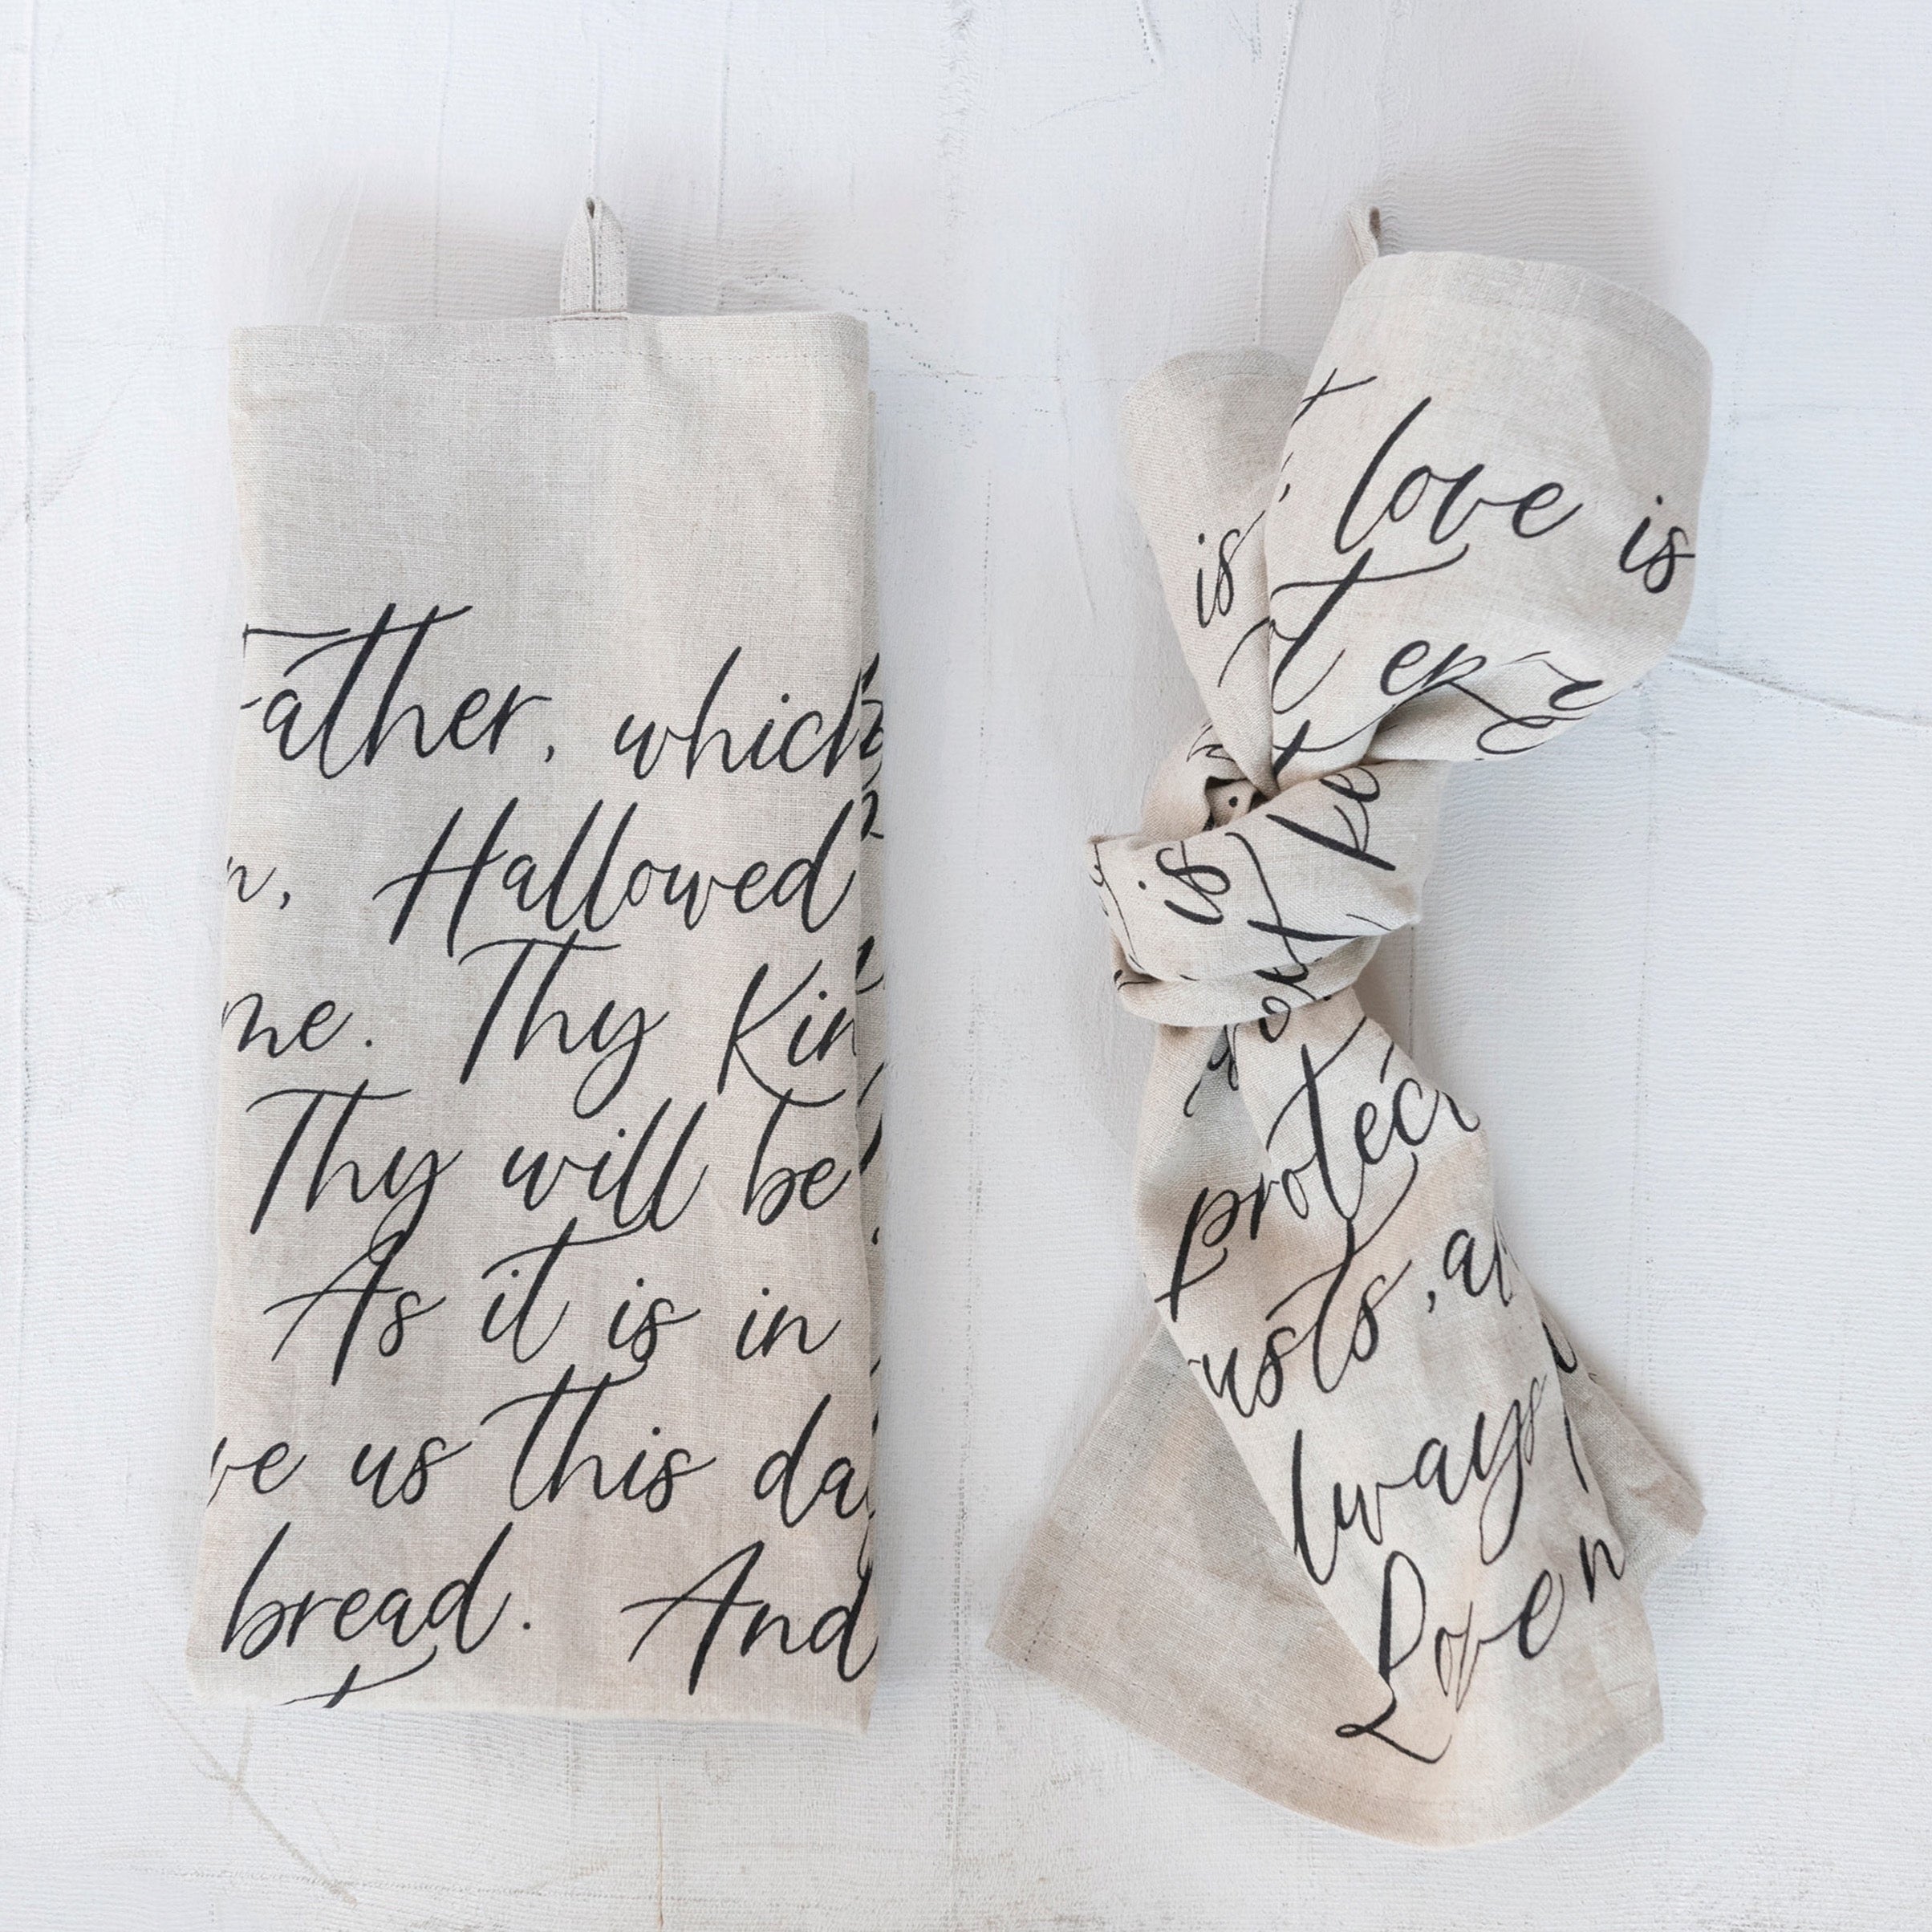 Father, which
n, Hallowed
me. Thy Kin
Thy will be
As it is in
ve us this da
bread. And
love is
is
t en
is
not
protec
usts, a
lways
Love n